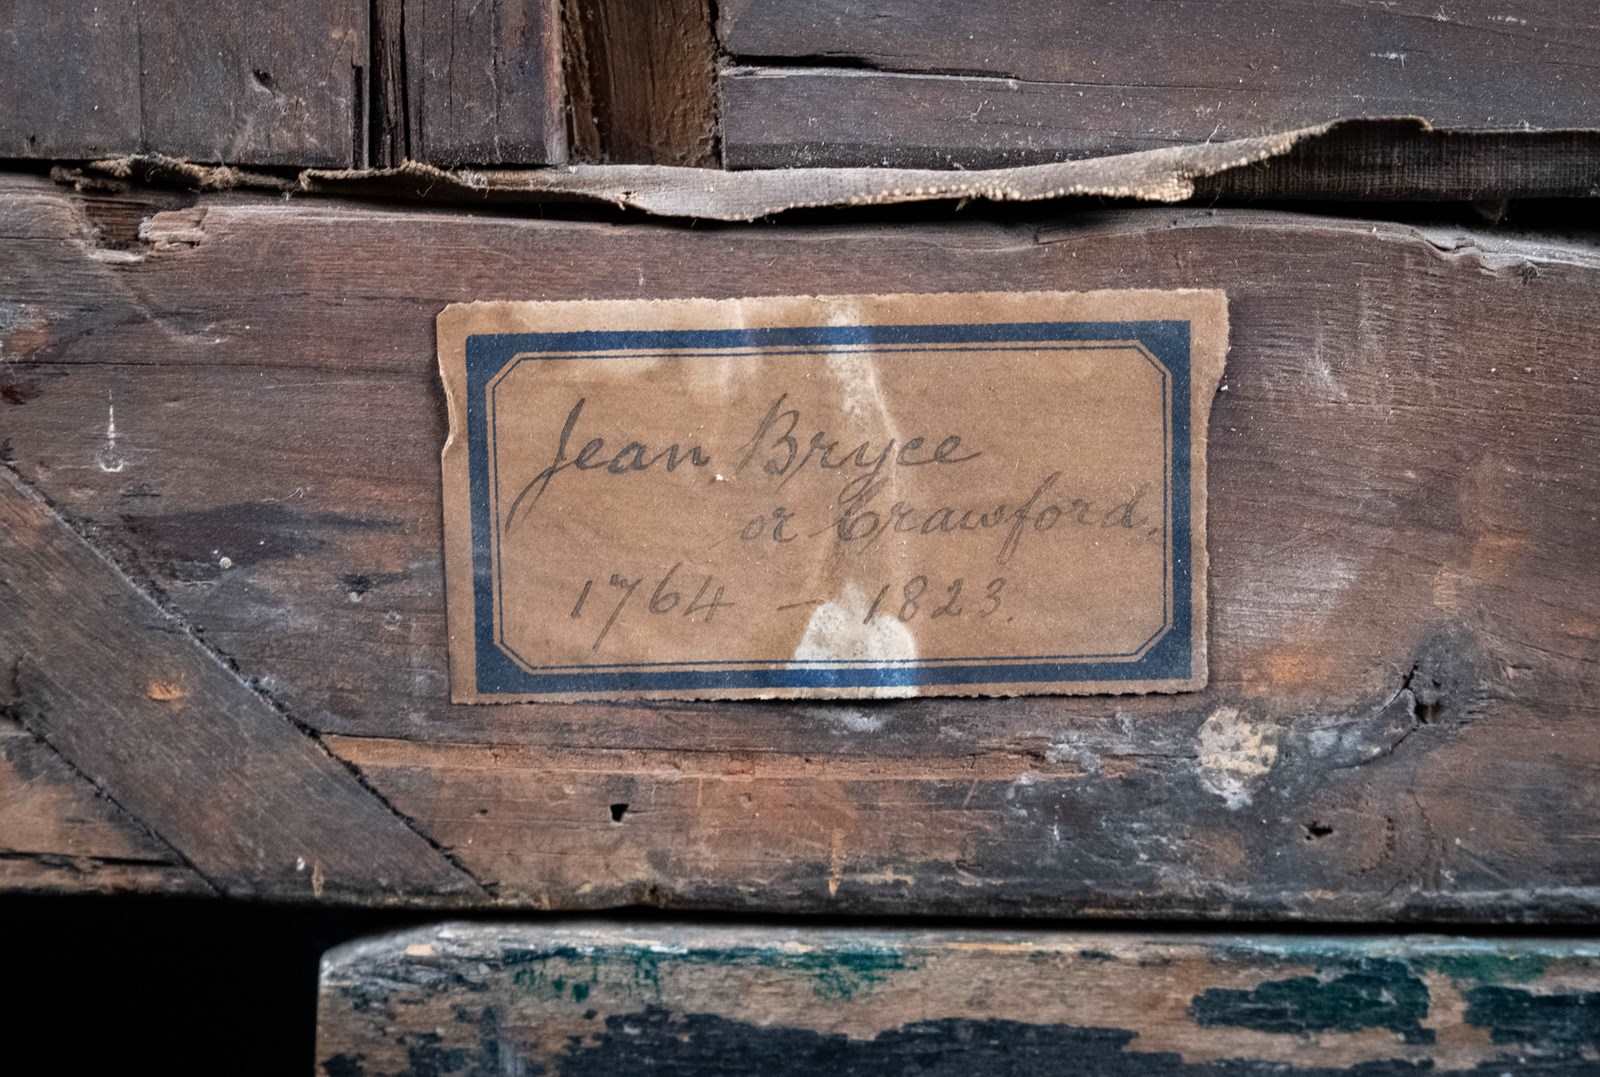 Jean Bryce
or Crawford.
1764 – 1823.